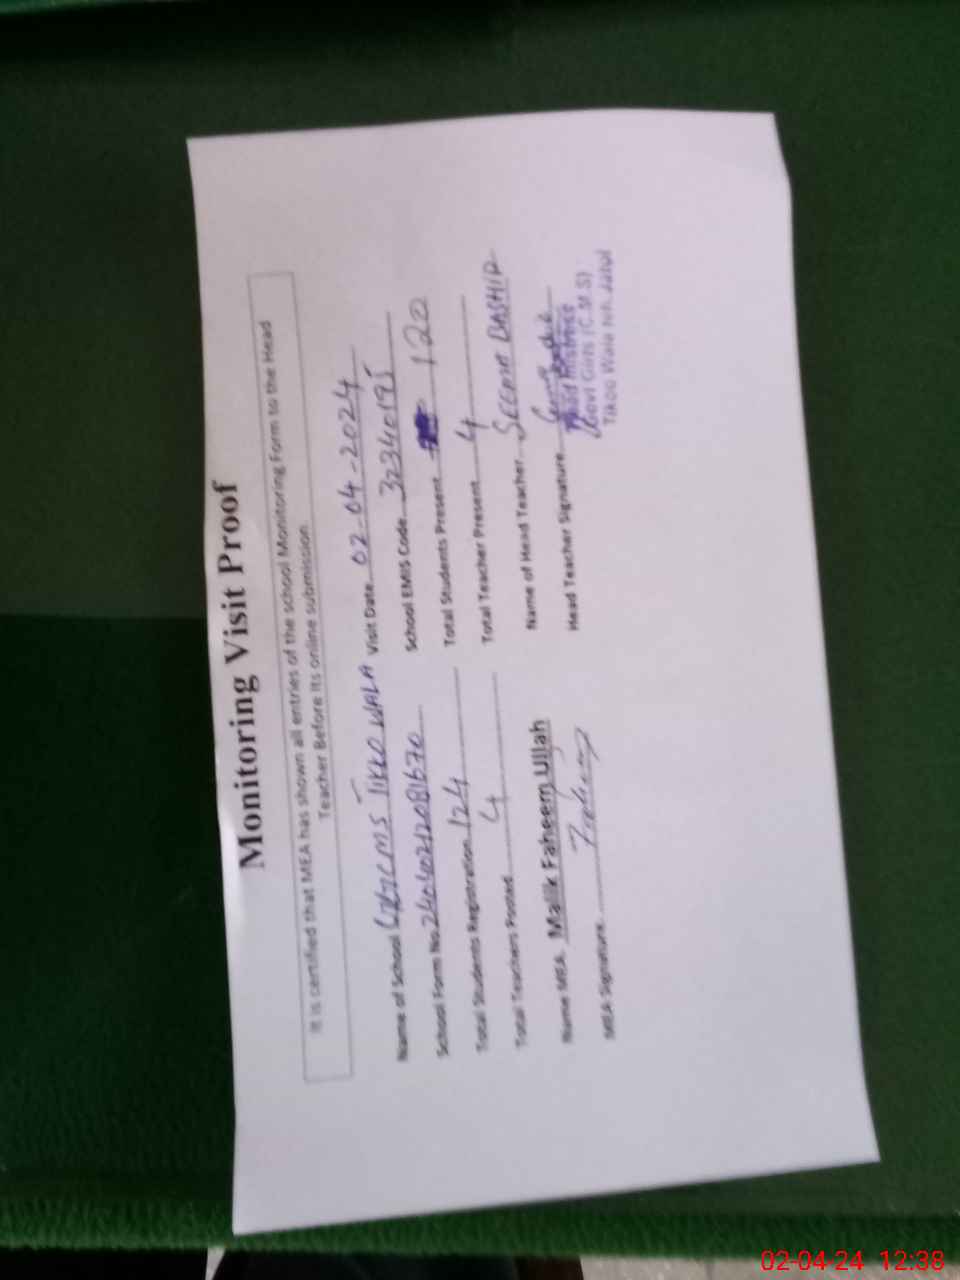 Monitoring Visit Proof
It is certified that MEA has shown all entries of the school Monitoring Form to the Head
Teacher Before its online submission
Name of School TIKKO WALA Visit Date 02-04-2024
School Form No. 2404021208 1670 School EMIS Code 32340195
Total Students Registration 124 Total Students Present 120
Total Teachers Posted 4 Total Teacher Present 4
Name MEA. Malik Faheem Ullah Name of Head Teacher SEEMA BASHIR
MEA Signature Head Teacher Signature
Head Mistress
Govt Girls (C.M.S)
Tikoo Wala Jatoi
02-04-24 12:38